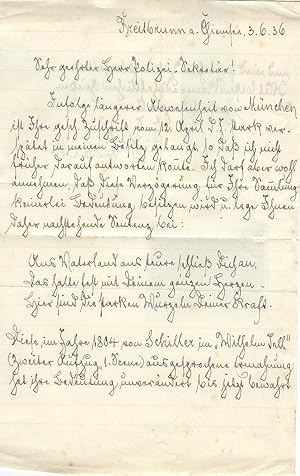 Breitbrunn a. Chiemsee, 3.6.36
Sehr geehrter Herr Polizei-Sekretär!
Infolge längerer Abwesenheit von München
ist Ihre gesch. Zuschrift vom 12. April d. J. stark ver-
spätet in meinen Besitz gelangt so daß ich nicht
früher darauf antworten konnte. Ich darf aber wohl
annehmen, daß diese Verzögerung für Ihre Samlung
keinerlei Bedeutung besitzen wird u. lege Ihnen
daher nachstehende Sentenz bei:
Ans Vaterland ans teure schließ Dich an,
Das halte fest mit Deinem ganzen Herzen.
Hier sind die starken Wurzeln Deiner Kraft.
Diese, im Jahre 1804 von Schiller im „Wilhelm Tell"
(Zweiter Aufzug, 1. Scene) ausgesprochene Ermahnung
hat ihre Bedeutung unverändert bis jetzt bewahrt